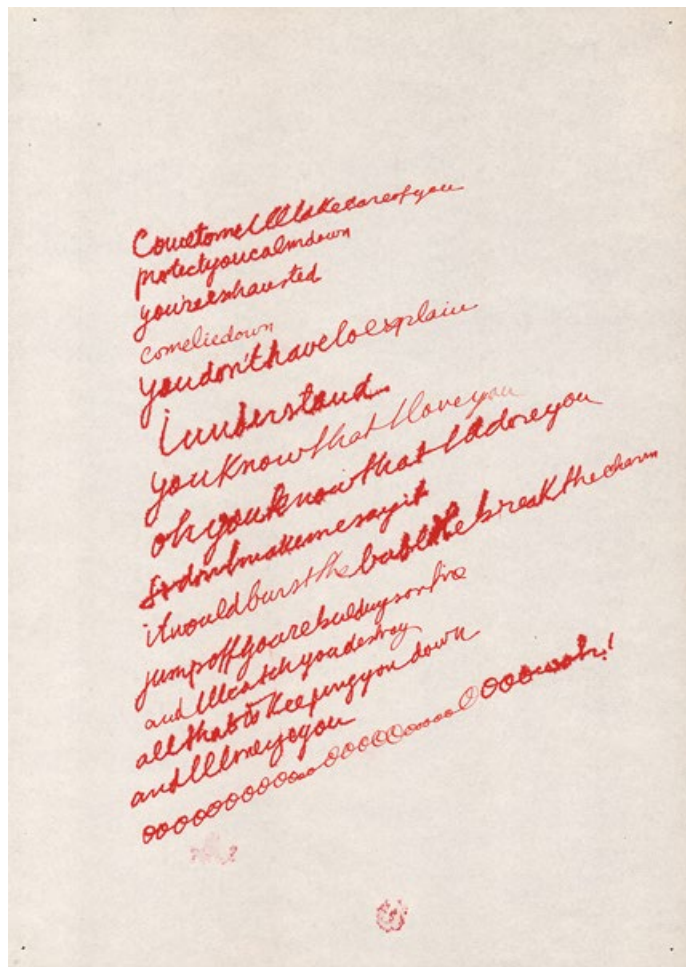 CometomeI'lltakecareofyou
protectyoucalmdown
you'reexhausted
comeliedown
youdon'thavetoexplain
iunderstand
youknowthatIloveyou
ohyouknowthatIadoreyou
sodontmakemesayit
itwouldburstthebubblebreakthecharm
jumpoffyourebuildingsonfire
andI'llcatchyoudestroy
allthatiskeepingyoudown
oooooooooooooooooooooooooooooh!